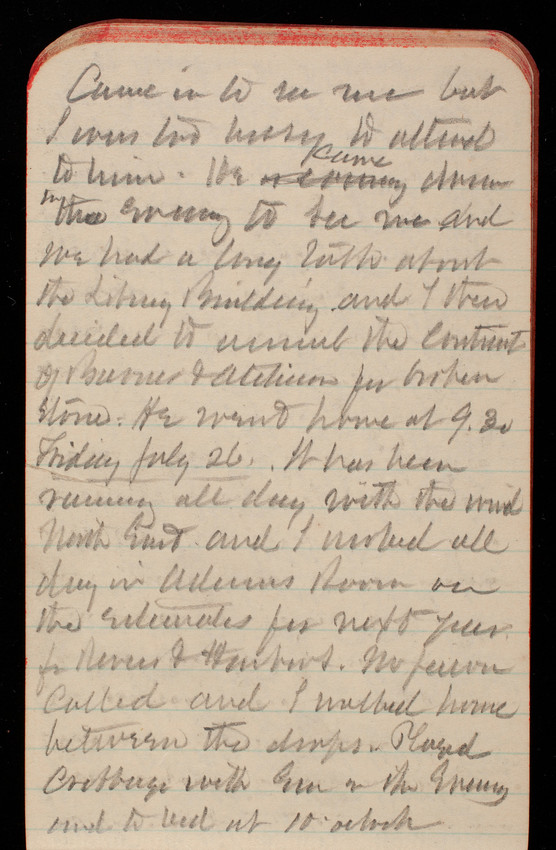 Came in to see me but
I was too busy to attend
to him. He came down
in the Evening to see me and
we had a long talk about
the Library Building and I then
decided to annul the Contract
of & Atchison for broken
stone. He went home at 9.30
Friday July 26. It has been
raining all day with the wind
North East and I worked all
day in Adams Room on
the estimates for next year
for Rivers & Harbors. No person
Called and I walked home
between the drops. Played
Cribbage with Em in the Evening
and to bed at 10 o'clock